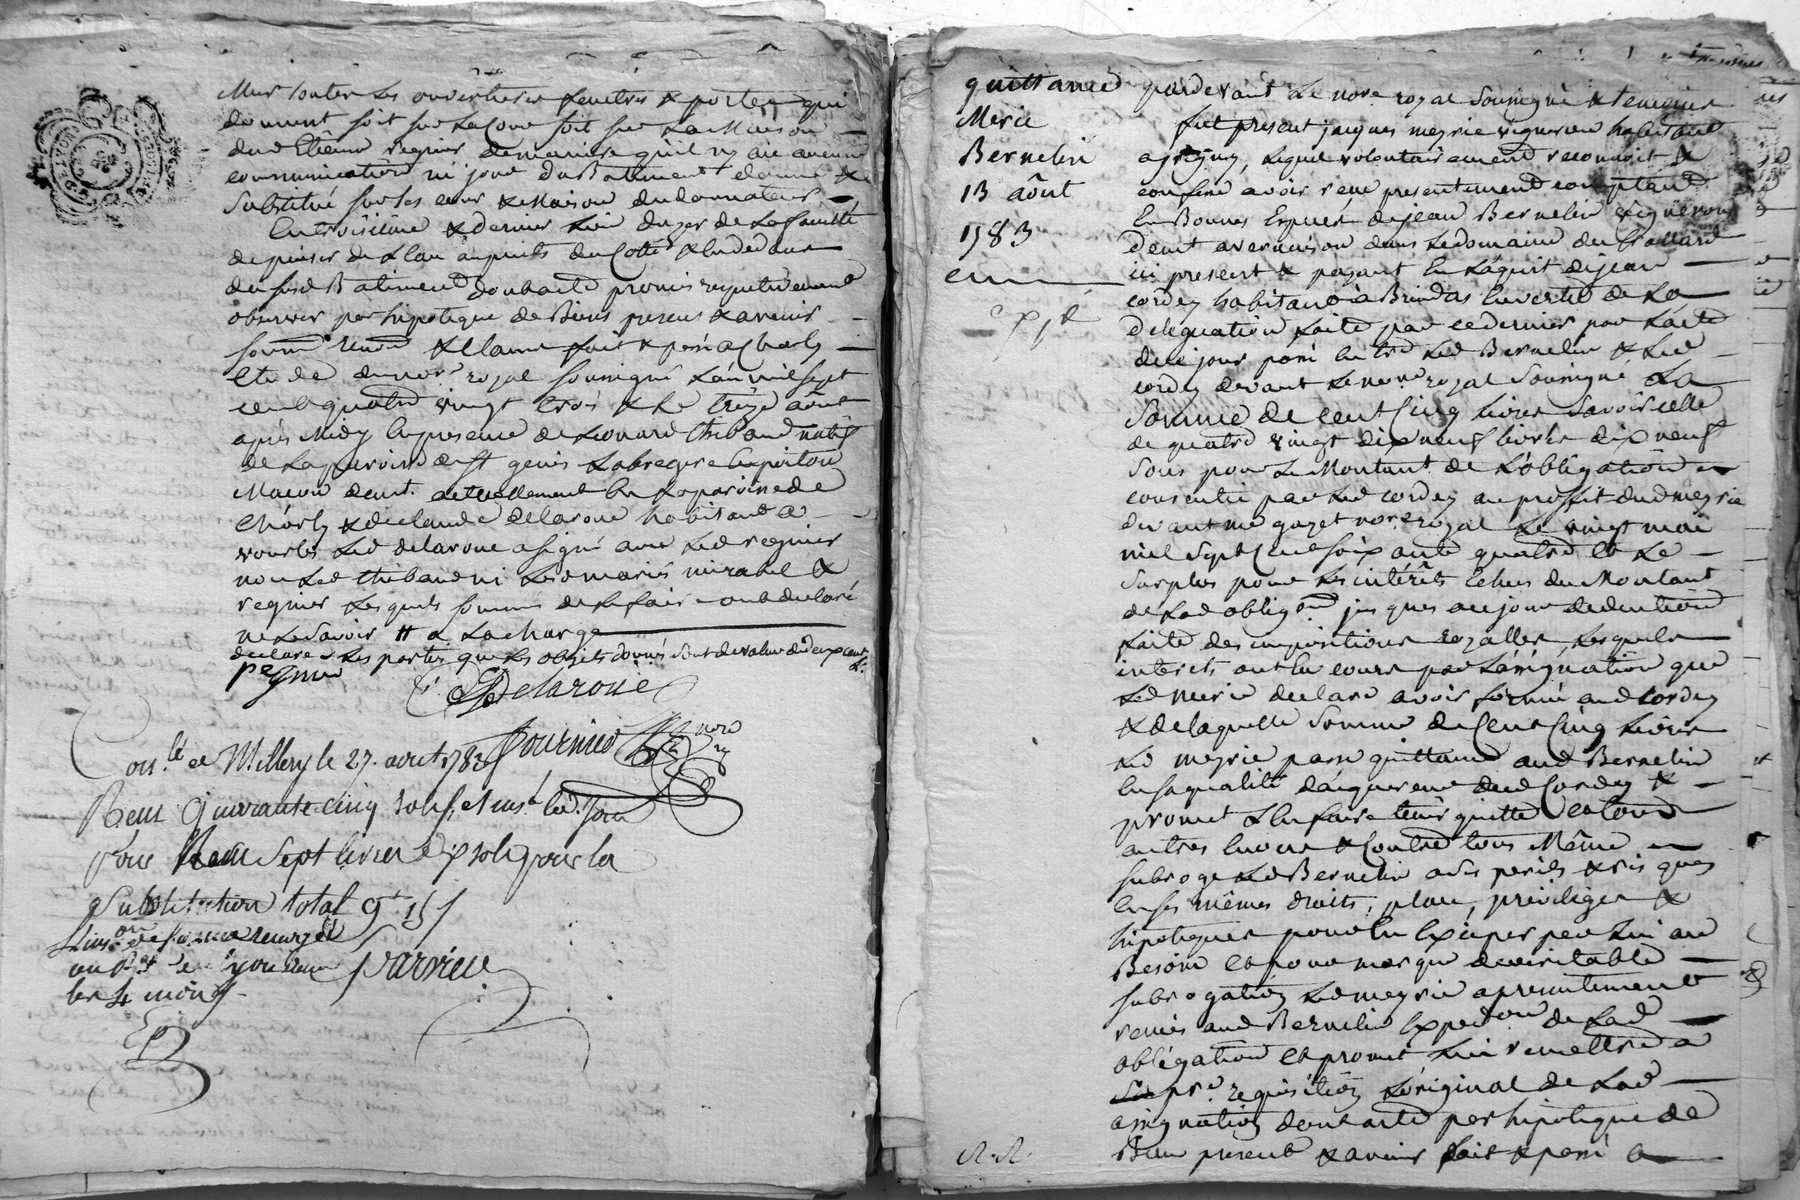 Murs toutes les ouvertures fenetres & portes qui
donnent soit sur la Cour soit sur la Maison
dud Etienne regnier de maniere qu'il ny aie aucune
communication ni jour du Batiment donné &
Substitué sur les cour & Maison du donnateur
En troisieme & dernier lieu d'user de la faculté
de puiser de l'eau au puits du Cotté & en dedans
du susd Batiment dont acte promis respectivement
observer par hipoteque de Biens presens & avenir
soumis renon & clause fait & passé a Charly
Etude du no.re royal soussigné l'an mil sept
cent quatre vingt trois & le treize aôut
après Midy En presence de Leonard thibaud natif
de la paroisse de st genis
Macon demt. actuellement En la paroisse de
Charly & de claude delaroue habitant a
vourles led delaroue a signé avec led regnier
non led thibaud ni lesd mariés mirabel &
regnier lesquels sommés de le faire ont declaré
ne le savoir # a la charge
declare les parties que les objets donnés sont de valeur de
Delaroüe
Fournier no.re
Con.lé a Millery le 27. aout 1783
Recu Quarante cinq sols, et
pour sept livres dix sols pour la
Substitution total 9# 15s
Parrieu
les 4 mois
quittance
Meric
Bernelin
13 aôut
1783
Expé
pardevant Le no.re royal Soussigné & temoins
fut present jacques meyrie vigneron habitant
a grigny, lequel volontairement reconnoit &
confesse avoir reçu presentement comptant
En Bonnes Especes de jean Bernelin vigneron
demt a vernaison dans le domaine du
ici present & payant En l'aquit de jean
cordey habitant a Brindas En vertu de la
délegation faite par ce dernier par l'acte
de ce jour passé Entre led Bernelin & led
cordey devant le no.re royal Soussigné La
Somme de Cent Cinq livres Savoir celle
de quatre vingt dix neuf livres dix neuf
Sous pour le Montant de l'obligation
consentie par led cordey au proffit dud meyrie
devant me guyet no.re royal Le vingt mai
mil Sept Cent soixante quatre Et Le
Surplus pour les intérêts Echus du Montant
de lad oblig.on jusques a ce jour deduction
faite des impositions royalles, lesquels
interets ont eu cours par l'assignation que
led merie declare avoir formé aud cordey
& de laquelle Somme de Cent Cinq livres
led meyrie passe quittance aud Bernelin
En sa qualité d'aquereur dud Cordey &
promet l'En faire tenir quitte Et tous
autres Envers & Contre tous Même
subroge led Bernelin a ses perils & risques
En ses mêmes droits, place, privileges &
hipoteques pour En Exciper par lui au
Besoin Et pour marque de veritable
subrogation led meyrie a presentement
remis aud Bernelin Expedon de lad
obligation Et promet lui remettre a
pre. requisition l'original de lad
assignation dont acte par hipoteque de
Biens present & avenir fait & passé a